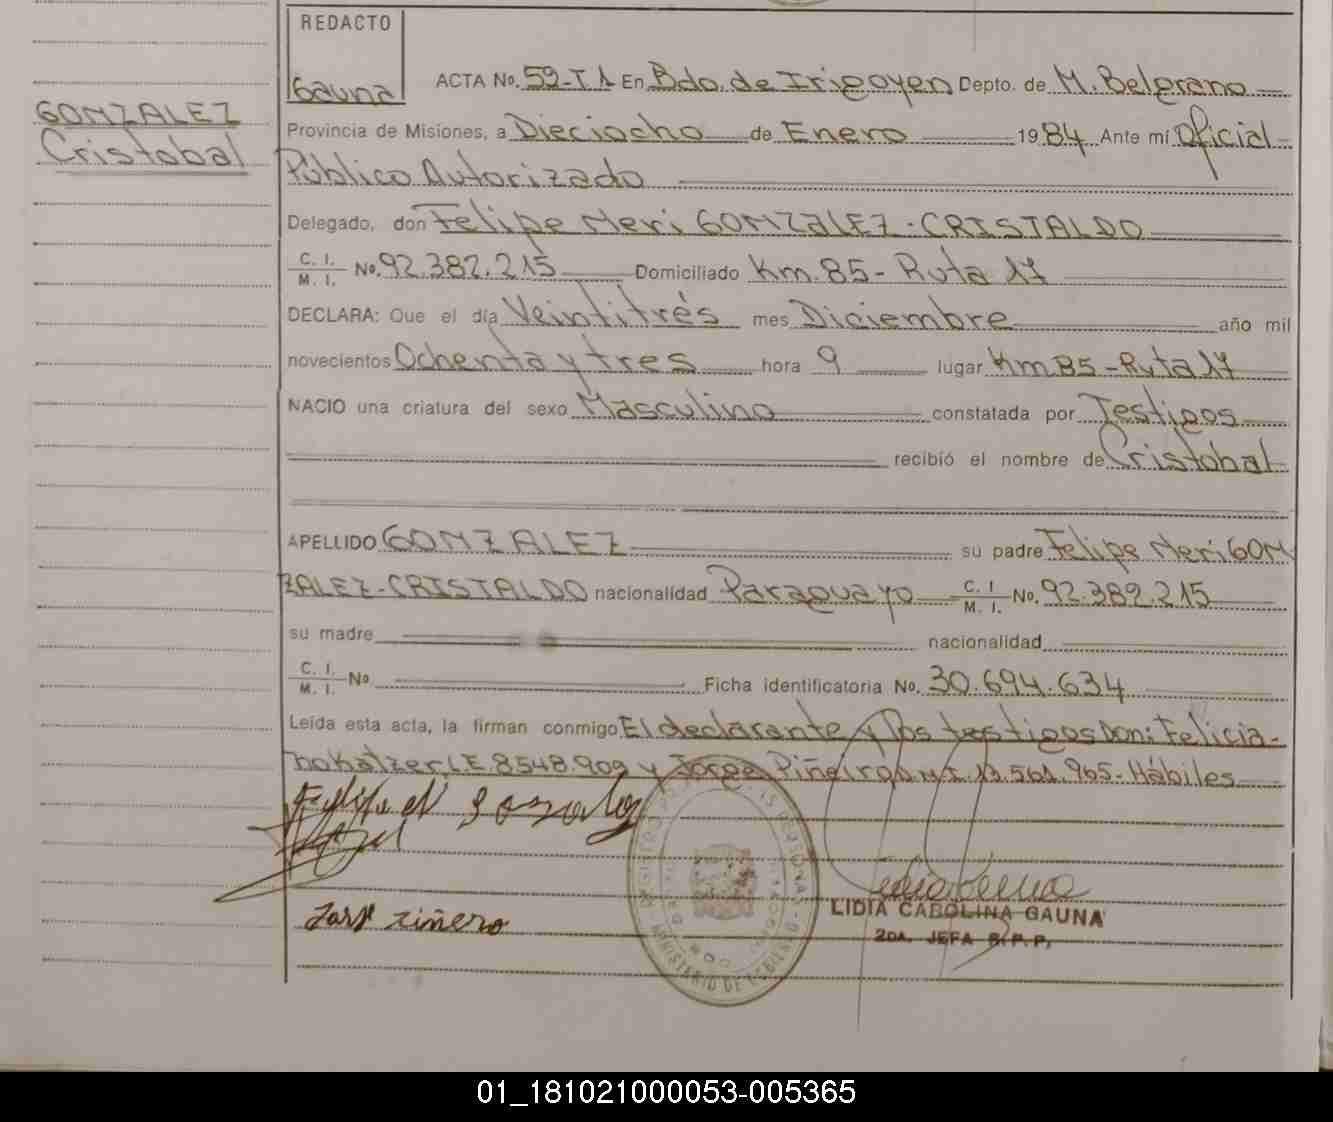 REDACTO
Gauna
GONZALEZ
Cristobal
ACTA No. 59-T1 En Bdo. de Irigoyen Depto. de M. Belgrano
Provincia de Misiones, a Dieciocho de Enero 1984 Ante mí Oficial
Público Autorizado
Delegado, don Felipe Neri GONZALEZ-CRISTALDO
C. I. M. I. No. 92.382.215 Domiciliado Km. 85 - Ruta 17
DECLARA: Que el día Veintitrés mes Diciembre año mil
novecientos Ochenta y tres hora 9 lugar Km 85 - Ruta 17
NACIO una criatura del sexo Masculino constatada por Testigos
recibió el nombre de Cristobal
APELLIDO GONZALEZ su padre Felipe Neri GON
ZALEZ-CRISTALDO nacionalidad Paraguayo C. I. M. I. No. 92.382.215
su madre nacionalidad
C. I. M. I. No Ficha identificatoria No. 30.694.634
Leída esta acta, la firman conmigo El declarante y los testigos Don: Felicia-
no Katzer, LE 8548.909 y Jorge M.I. 13.561.965 - Hábiles
LIDIA CAROLINA GAUNA
2DA. JEFA R.P.P.
MINISTERIO DE GOBIERNO
01_181021000053-005365